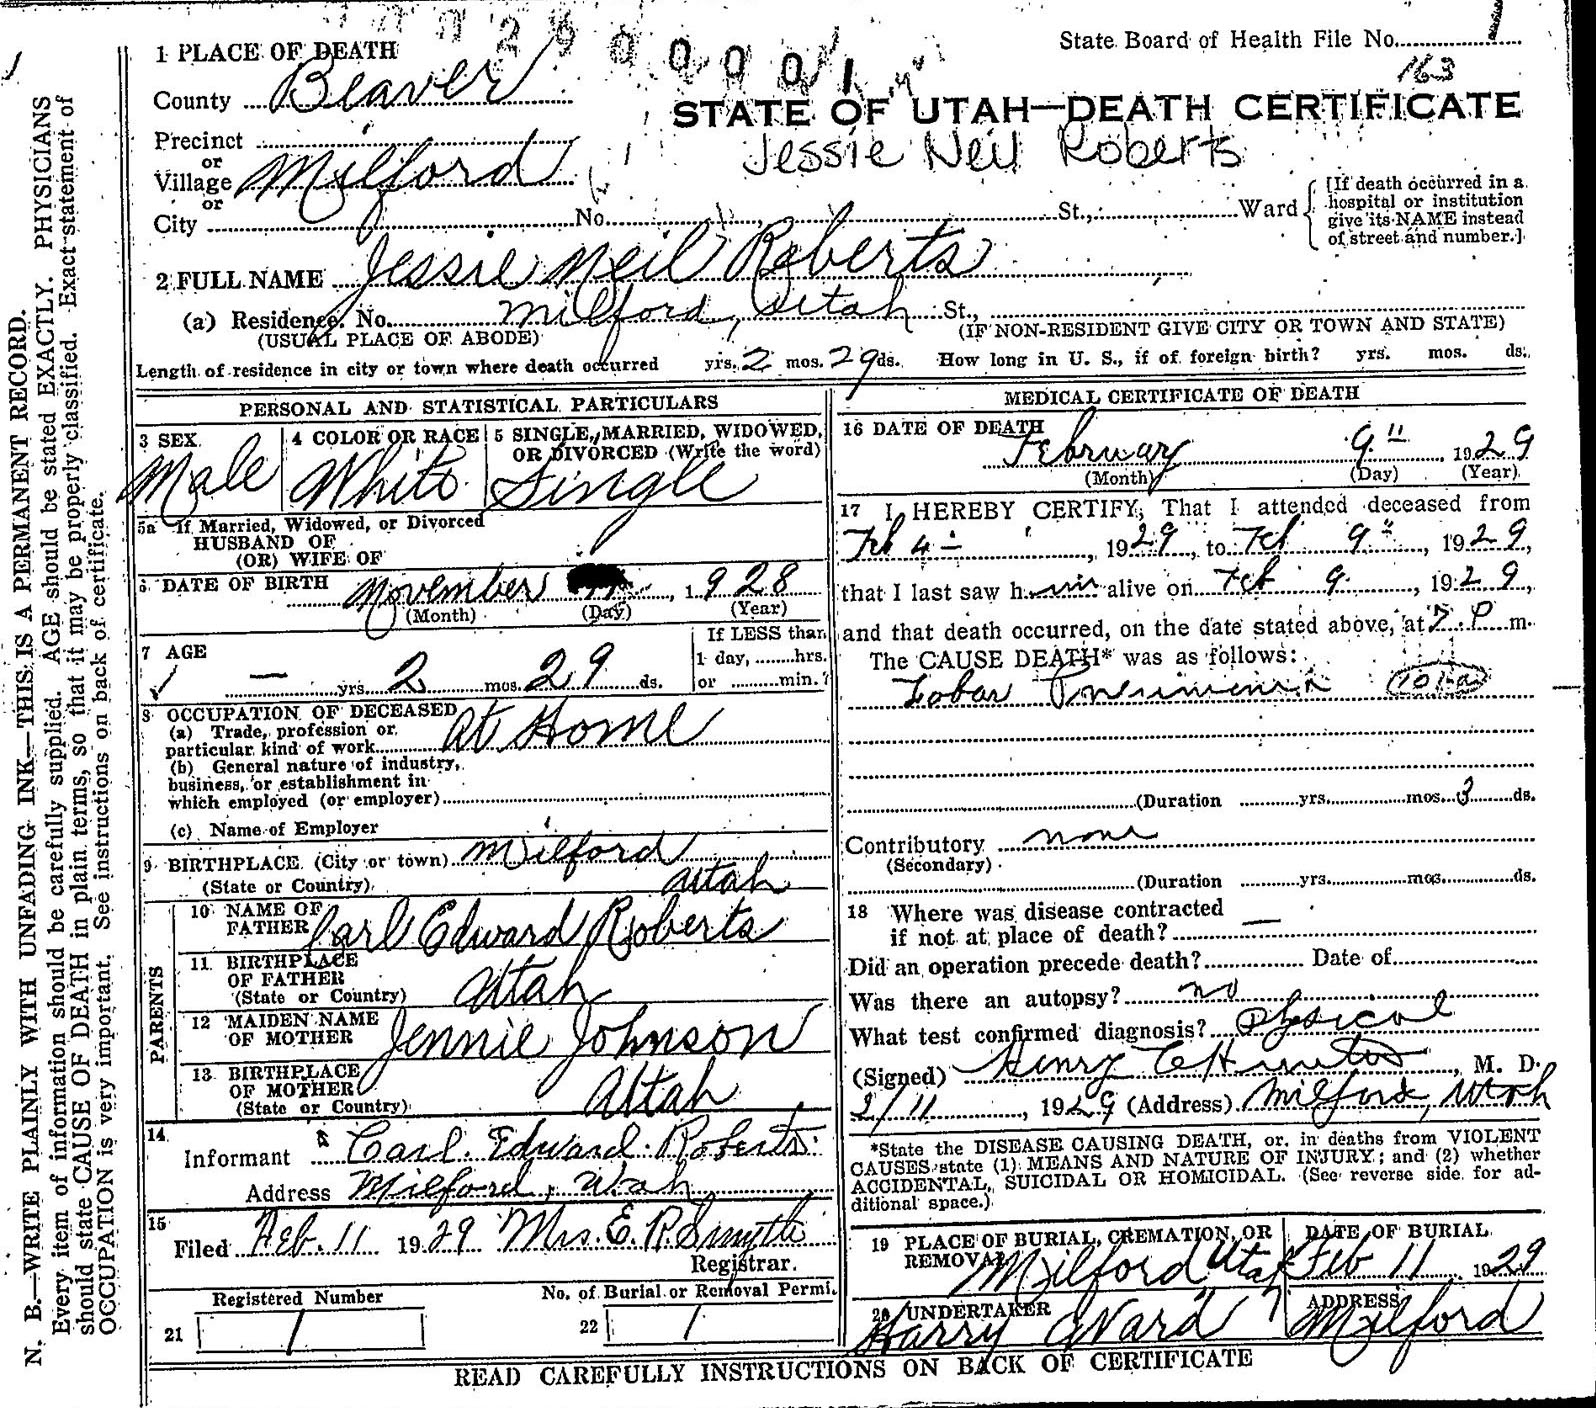 State Board of Health File No. 1
163
1 PLACE OF DEATH
County Beaver
STATE OF UTAH—DEATH CERTIFICATE
Jessie Neil Roberts
Precinct
or
Village Milford
or
City No. St., Ward
[If death occurred in a
hospital or institution
give its NAME instead
of street and number.]
2 FULL NAME Jessie Neil Roberts
(a) Residence. No. Milford, Utah St.,
(USUAL PLACE OF ABODE) (IF NON-RESIDENT GIVE CITY OR TOWN AND STATE)
Length of residence in city or town where death occurred yrs. 2 mos. 29 ds. How long in U. S., if of foreign birth? yrs. mos. ds.
PERSONAL AND STATISTICAL PARTICULARS
3 SEX 4 COLOR OR RACE 5 SINGLE, MARRIED, WIDOWED,
OR DIVORCED (Write the word)
Male White Single
5a If Married, Widowed, or Divorced
HUSBAND OF
(OR) WIFE OF
6 DATE OF BIRTH November 1928
(Month) (Day) (Year)
7 AGE If LESS than
1 day, hrs.
— yrs. 2 mos. 29 ds. or min.?
8 OCCUPATION OF DECEASED
(a) Trade, profession or
particular kind of work At Home
(b) General nature of industry,
business, or establishment in
which employed (or employer)
(c) Name of Employer
9 BIRTHPLACE (City or town) Milford
(State or Country) Utah
PARENTS
10 NAME OF
FATHER Carl Edward Roberts
11 BIRTHPLACE
OF FATHER
(State or Country) Utah
12 MAIDEN NAME
OF MOTHER Jennie Johnson
13 BIRTHPLACE
OF MOTHER
(State or Country) Utah
14
Informant Carl Edward Roberts
Address Milford, Utah
15
Filed Feb. 11 1929 Mrs. E. R. Smyth
Registrar.
Registered Number No. of Burial or Removal Permi.
21 1 22 1
MEDICAL CERTIFICATE OF DEATH
16 DATE OF DEATH
February 9" 1929
(Month) (Day) (Year)
17 I HEREBY CERTIFY, That I attended deceased from
Feb 4 — , 1929, to Feb 9", 1929,
that I last saw him alive on Feb 9, 1929,
and that death occurred, on the date stated above, at 7 P m.
The CAUSE DEATH* was as follows:
Lobar Pneumonia 101-a
(Duration yrs. mos. 3 ds.
Contributory none
(Secondary)
(Duration yrs. mos. ds.
18 Where was disease contracted
if not at place of death? —
Did an operation precede death? Date of
Was there an autopsy? no
What test confirmed diagnosis? Physical
(Signed) Henry , M. D.
2/11, 1929 (Address) Milford, Utah
*State the DISEASE CAUSING DEATH, or in deaths from VIOLENT
CAUSES state (1) MEANS AND NATURE OF INJURY; and (2) whether
ACCIDENTAL, SUICIDAL OR HOMICIDAL. (See reverse side for ad-
ditional space.)
19 PLACE OF BURIAL, CREMATION, OR
REMOVAL Milford Utah
DATE OF BURIAL
Feb 11, 1929
20 UNDERTAKER
Harry Ward
ADDRESS
Milford
READ CAREFULLY INSTRUCTIONS ON BACK OF CERTIFICATE
N. B.—WRITE PLAINLY WITH UNFADING INK—THIS IS A PERMANENT RECORD.
Every item of information should be carefully supplied. AGE should be stated EXACTLY. PHYSICIANS
should state CAUSE OF DEATH in plain terms, so that it may be properly classified. Exact statement of
OCCUPATION is very important. See instructions on back of certificate.